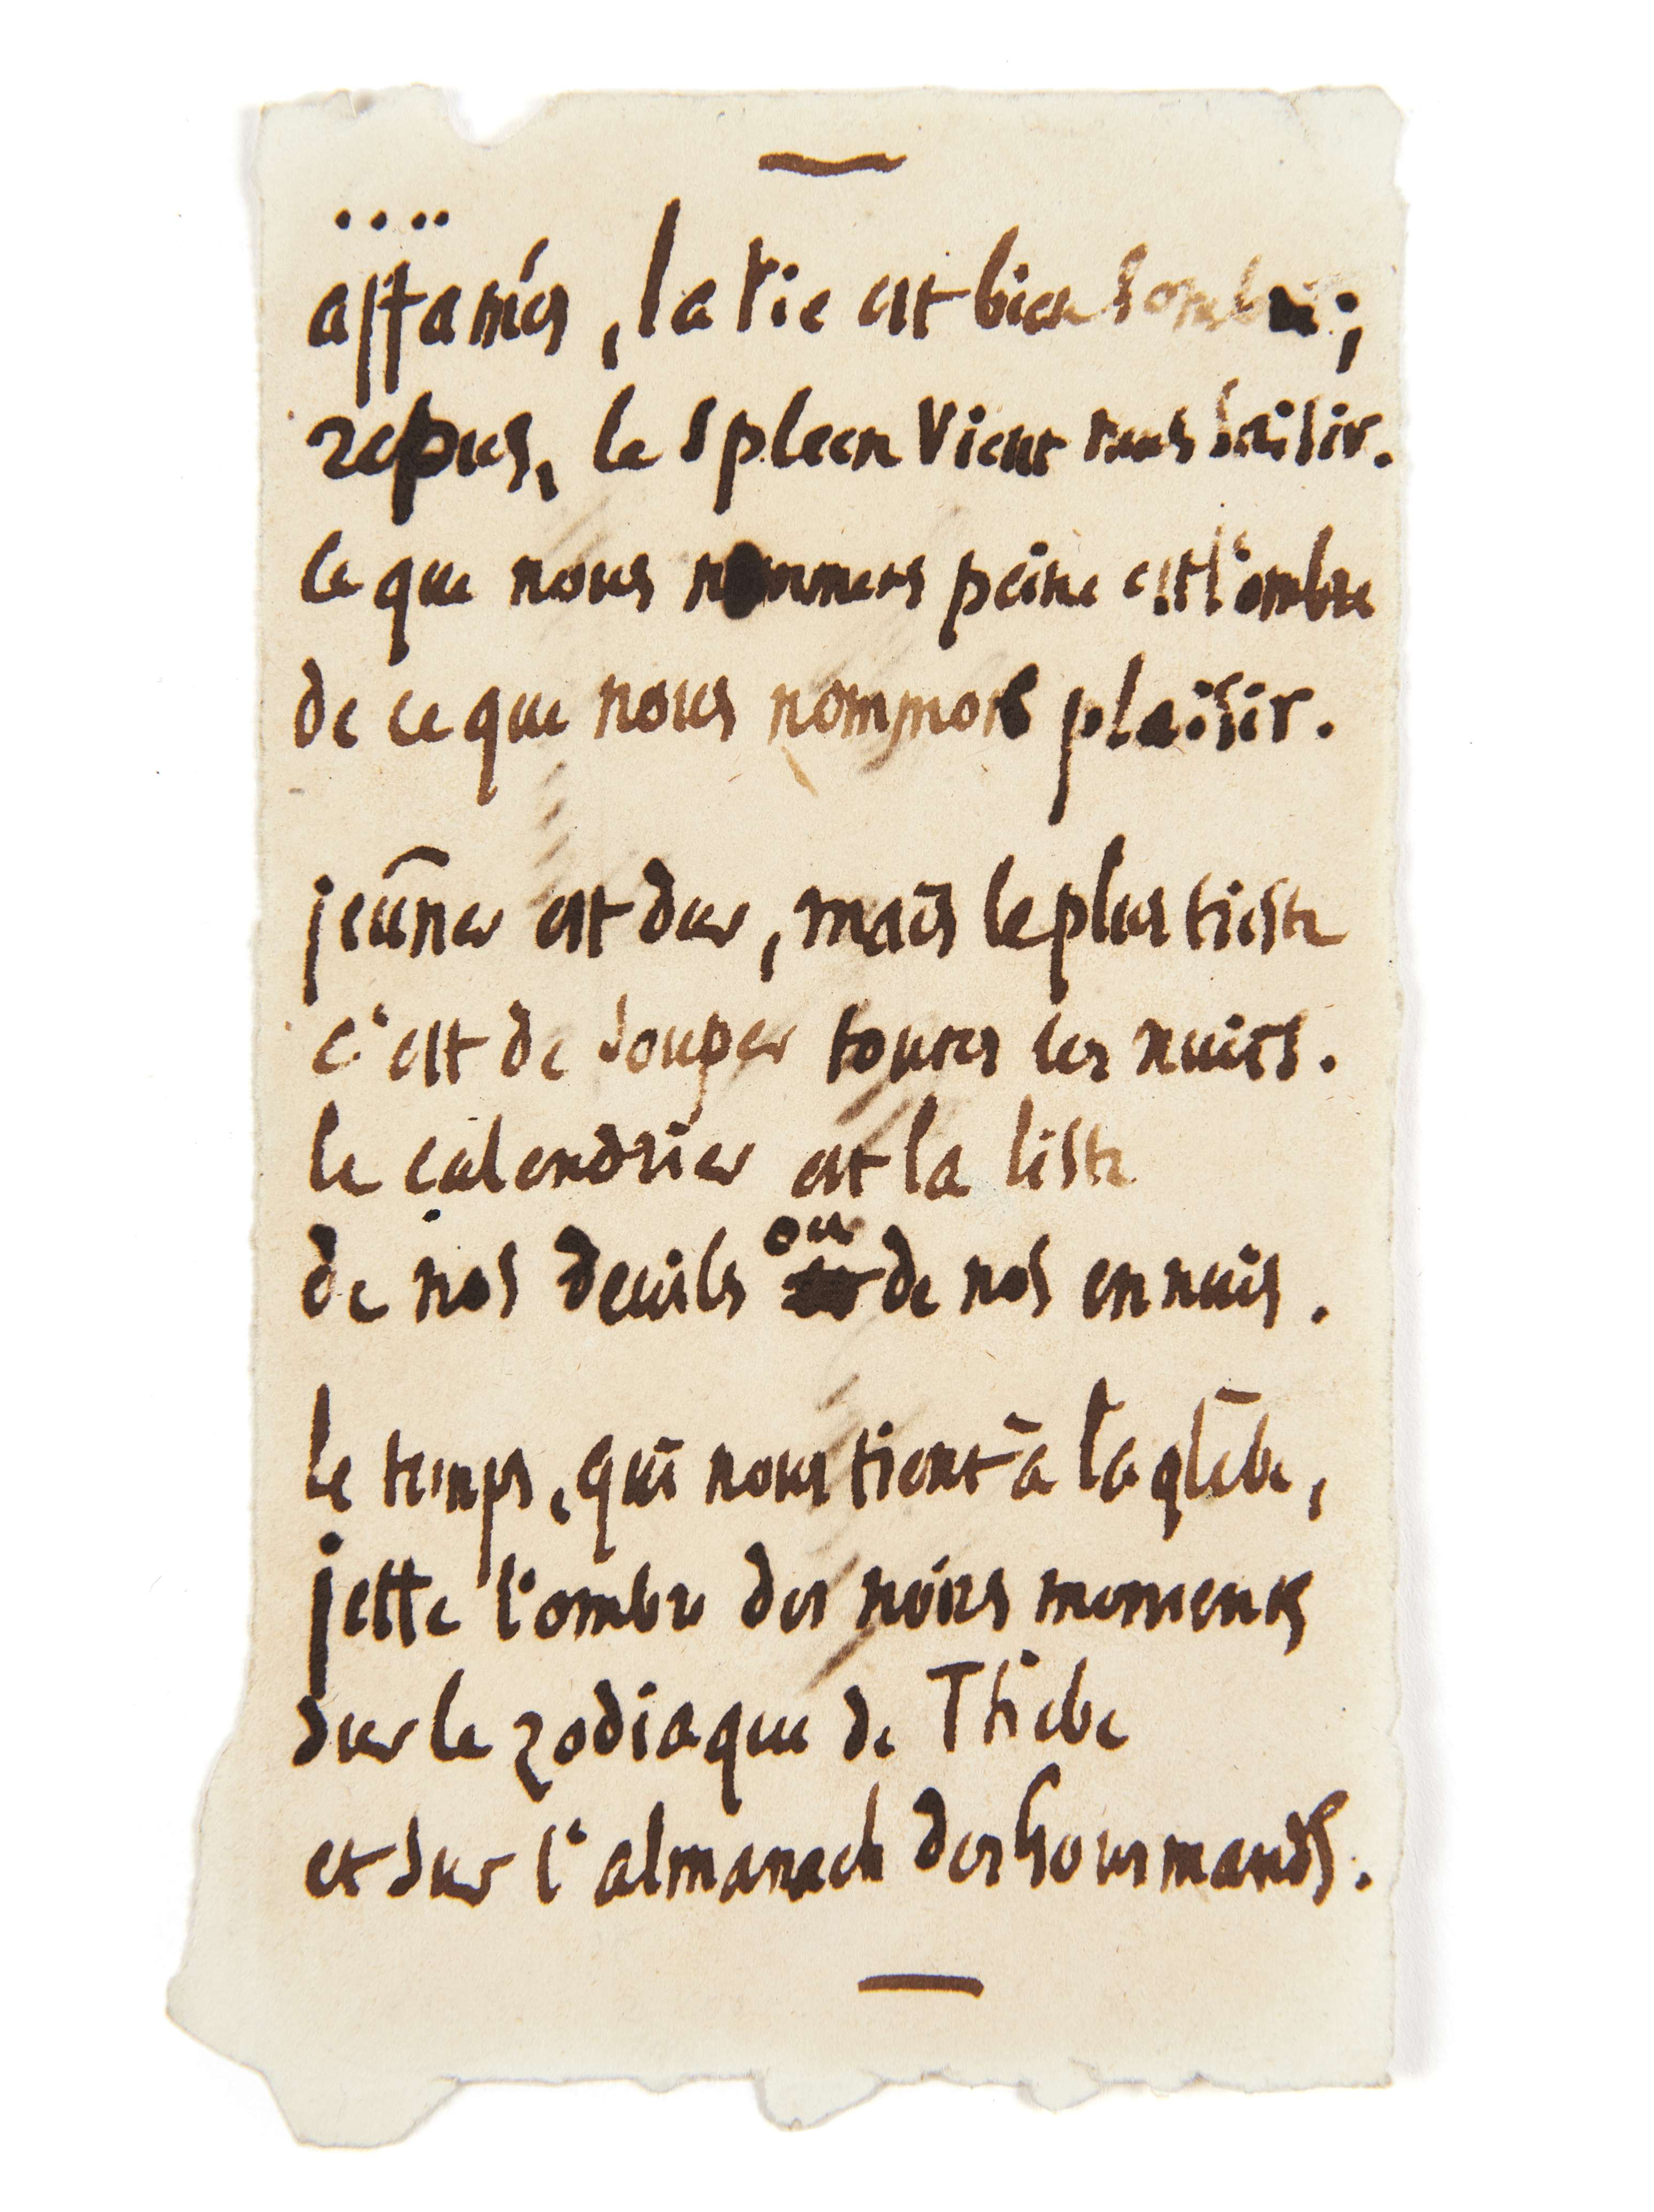 ....
affamés, la vie est bien sombre ;
repus, le spleen vient nous saisir.
Ce que nous nommons peine est l'ombre
de ce que nous nommons plaisir.
jeûner est dur, mais le plus triste
c'est de souper toutes les nuits.
le calendrier est la liste
de nos deuils ou de nos ennuis.
le temps, qui nous tient à la glèbe,
jette l'ombre des noirs moments
sur le zodiaque de Thèbe
et sur l'almanach des Gourmands.